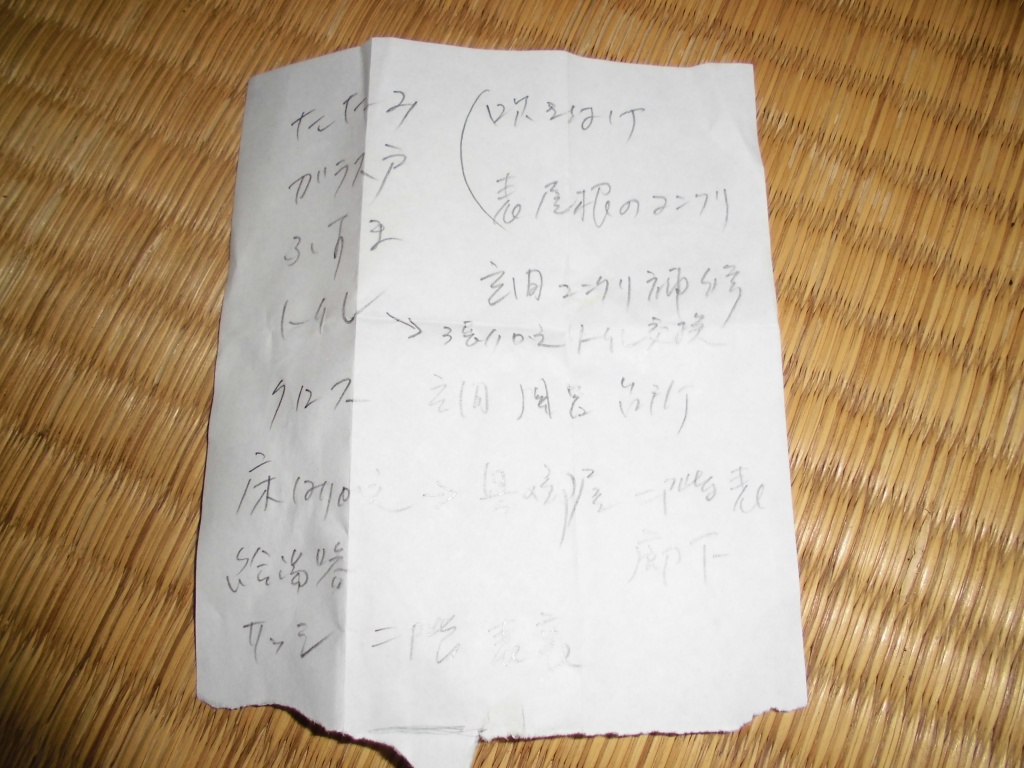 たたみ
吹きつけ
ガラス戸
表屋根のコンクリ
ふすま
玄関コンクリ補修
トイレ
→ トイレ交換
クロス 玄関 台所
床 → 奥部屋 二階表
廊下
給湯器
サッシ 二階 表裏